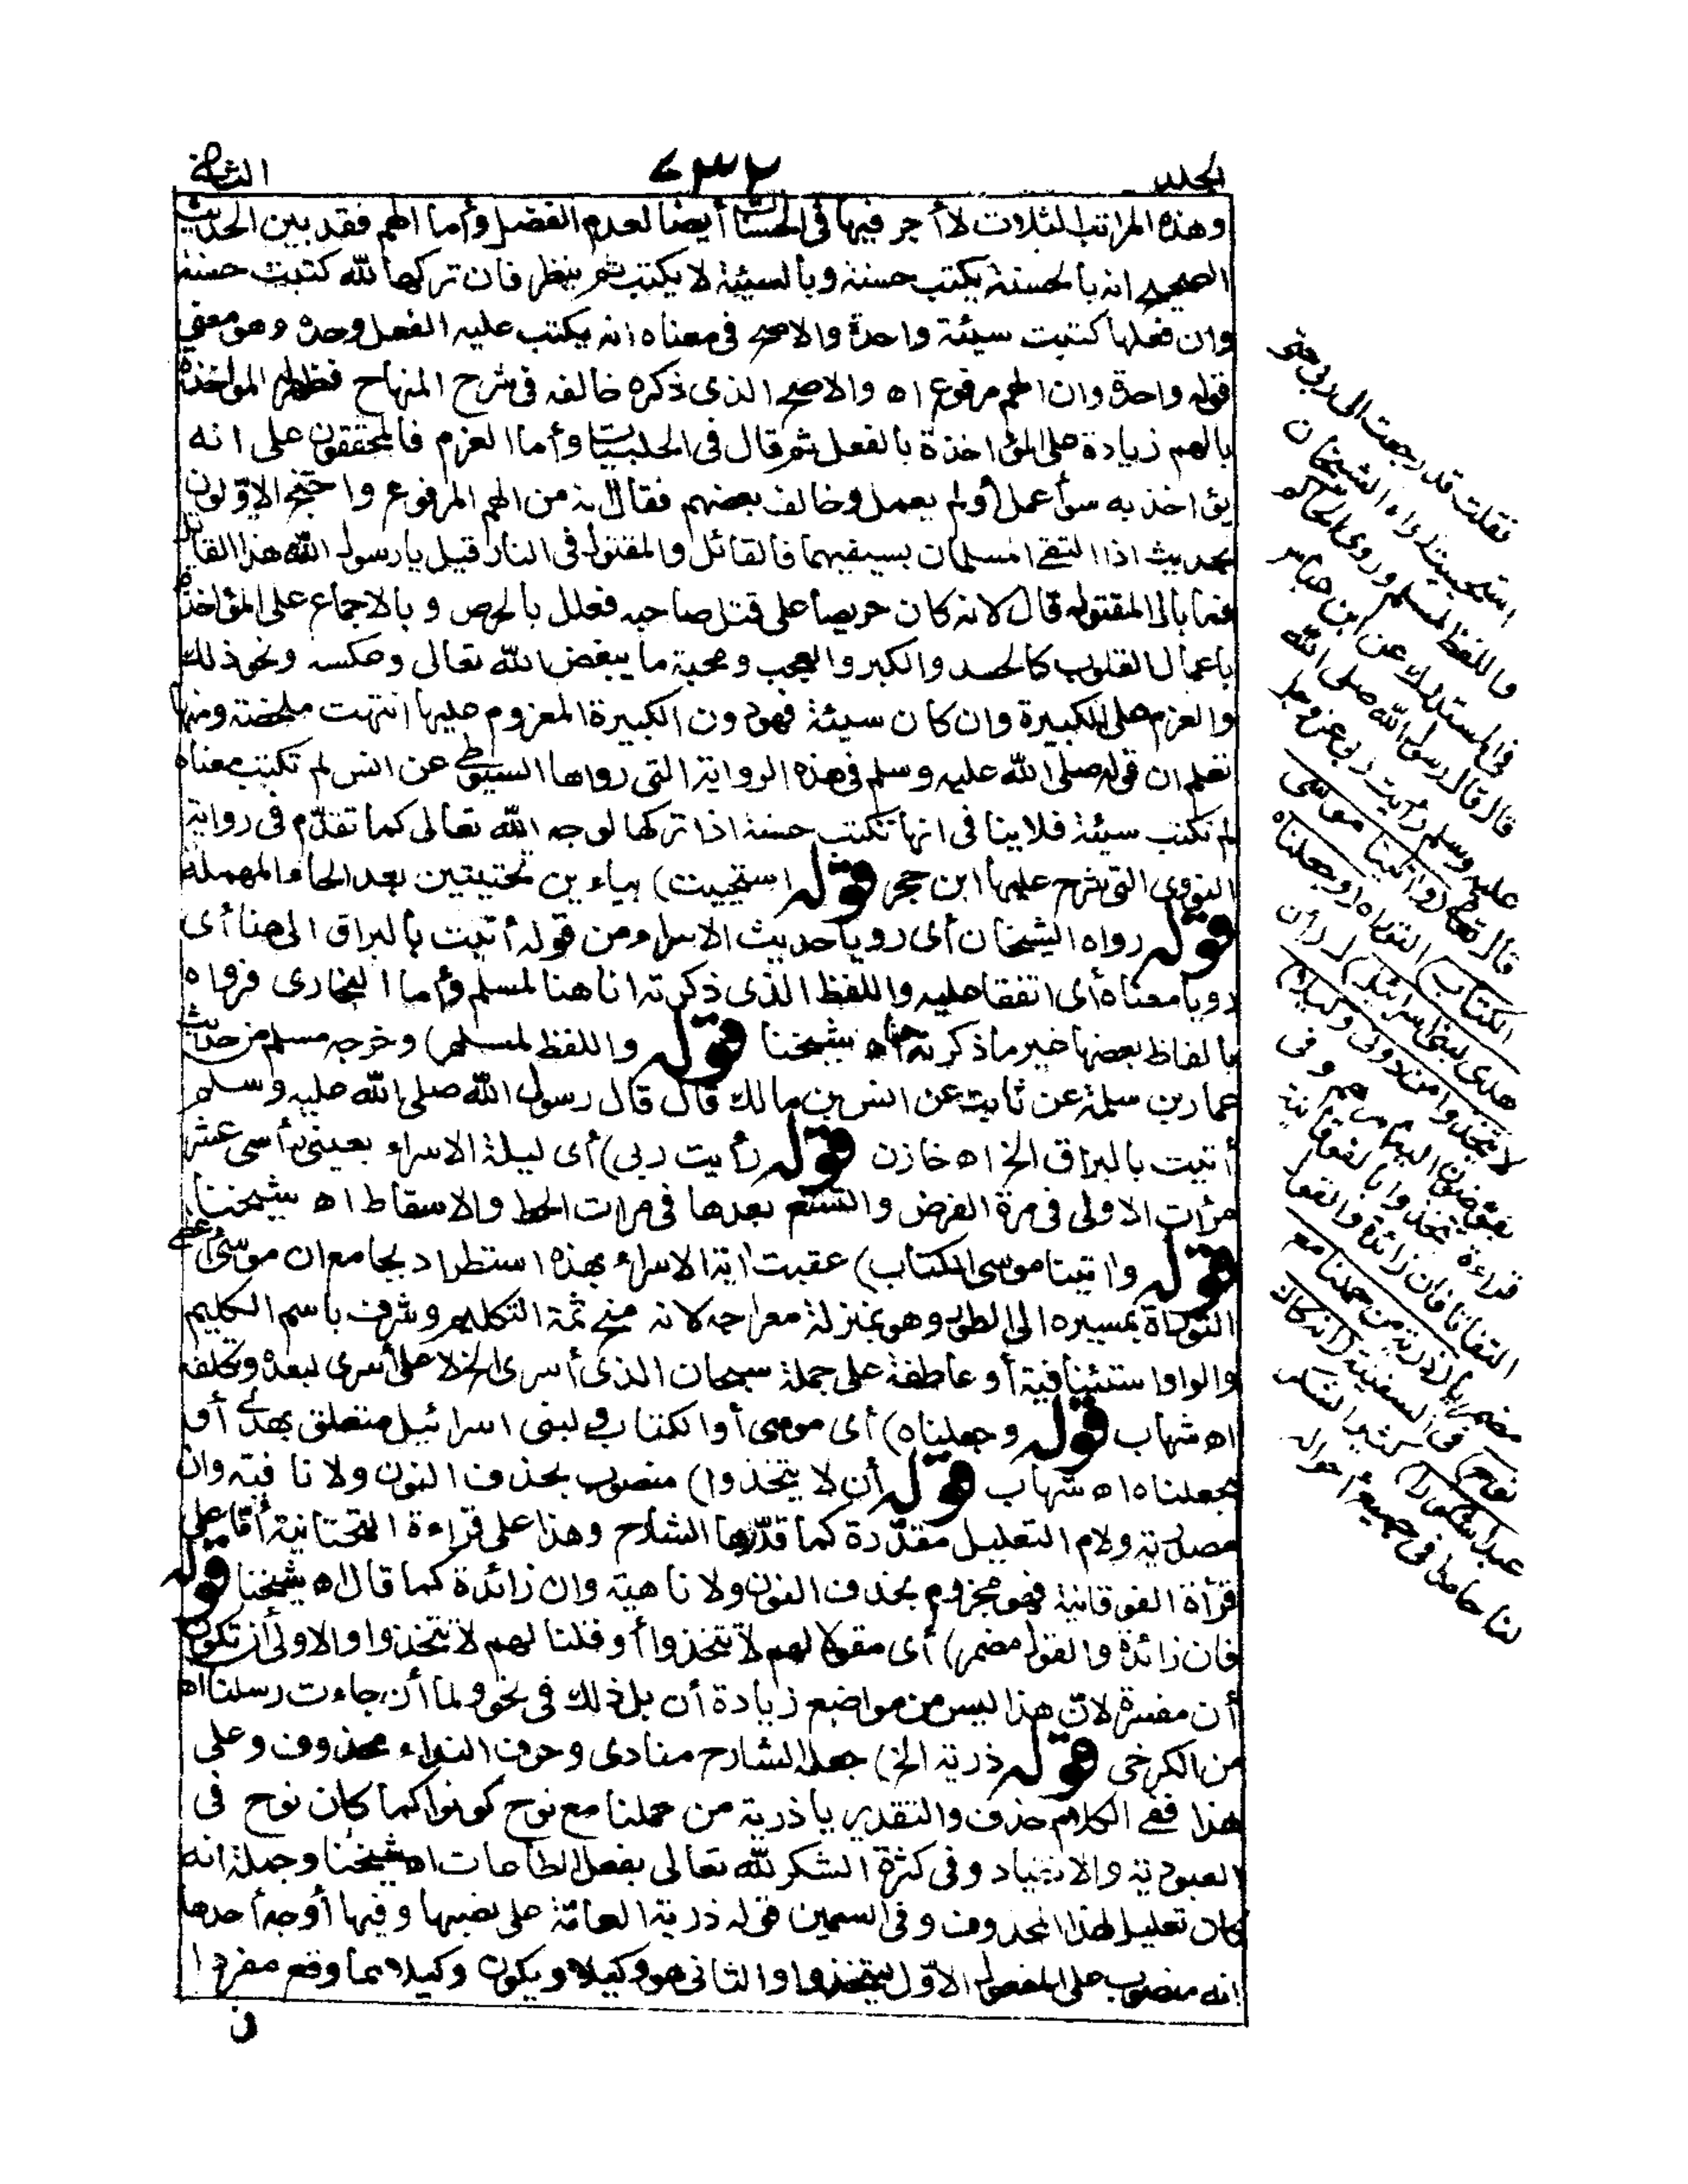 الجلد
٦٣٢
الثانى
وهذه المراتب الثلاث لا أجر فيها فى الحسنات أيضا لعدم القصد وأما الهم فقد بين الحديث
الصحيح انه بالحسنة يكتب حسنة وبالسيئة لا يكتب ثم ينظر فان تركها لله كتبت حسنة
وان فعلها كتبت سيئة واحدة والاصح فى معناه انه يكتب عليه الفعل وحده وهو معنى
قوله واحدة وان الهم مرفوع اه والاصح الذى ذكره خالفه فى شرح المنهاج فظاهر المواخذة
بالهم زيادة على المؤاخذة بالفعل ثم قال فى الحلبيات وأما العزم فالمحققون على انه
يؤاخذ به سواء عمل أو لم يعمل وخالف بعضهم فقال انه من الهم المرفوع واحتج الاولون
بحديث اذا التقى المسلمان بسيفيهما فالقاتل والمقتول فى النار قيل يارسول الله هذا القاتل
فما بال المقتول قال لانه كان حريصا على قتل صاحبه فعلل بالحرص وبالاجماع على المؤاخذة
باعمال القلوب كالحسد والكبر والعجب ومحبة ما يبغض الله تعالى وعكسه ونحو ذلك
والعزم على الكبيرة وان كان سيئة فهو دون الكبيرة المعزوم عليها انتهت ملخصة ومنها
تعلم ان قوله صلى الله عليه وسلم فى هذه الرواية التى رواها السيوطى عن انس لم تكتب معناه
لم تكتب سيئة فلا ينافى انها تكتب حسنة اذا تركها لوجه الله تعالى كما تقدم فى رواية
النووى التى شرح عليها ابن حجر قوله استحييت) بياءين تحتيتين بعد الحاء المهملة
قوله رواه الشيخان أى رويا حديث الاسراء من قوله أتيت بالبراق الى هنا أى
رويا معناه أى اتفقا عليه واللفظ الذى ذكرته انا هنا لمسلم وأما البخارى فرواه
بالفاظ بعضها غير ما ذكرته هنا اه شيخنا قوله واللفظ لمسلم) وخرجه مسلم من حديث
حماد بن سلمة عن ثابت عن انس بن مالك قال قال رسول الله صلى الله عليه وسلم
أتيت بالبراق الخ اه خازن قوله رأيت ربى) أى ليلة الاسراء بعينى رأسى عشر
مرات الاولى فى مرة الفرض والتسع بعدها فى مرات الحط والاسقاط اه شيخنا
قوله واتينا موسى الكتاب) عقبت اية الاسراء بهذه استطراد بجامع ان موسى أعطى
التوراة بمسيره الى الطور وهو بمنزلة معراجه لانه منح ثمة التكليم وشرف باسم الكليم
والواو استئنافية أو عاطفة على جملة سبحان الذى أسرى الخ لا على أسرى لبعده وتكلفه
اه شهاب قوله وجعلناه) أى موسى أو الكتاب ولبنى اسرائيل متعلق بهدى أو
بجعلناه اه شهاب قوله أن لا يتخذوا) منصوب بحذف النون ولا نافية وان
مصدرية ولام التعليل مقدرة كما قدرها الشارح وهذا على قراءة التحتانية أما على
قرأة الفوقانية فهو مجزوم بحذف النون ولا ناهية وان زائدة كما قال اه شيخنا قوله
فان زائدة والقول مضمر) أى مقولا لهم لا تتخذوا أو قلنا لهم لا تتخذوا والاولى أن تكون
أن مفسرة لان هذا ليس من مواضع زيادة أن بل ذلك فى نحو ولما أن جاءت رسلنا اه
من الكرخى قوله ذرية الخ) جعله الشارح منادى وحرف النداء محذوف وعلى
هذا ففى الكلام حذف والتقدير يا ذرية من حملنا مع نوح كونوا كما كان نوح فى
العبودية والانقياد وفى كثرة الشكر لله تعالى بفعل الطاعات اه شيخنا وجملة انه
كان تعليل لهذا المحذوف وفى السمين قوله ذرية العامة على نصبها وفيها أوجه أحدها
انه منصوب على المفعول الاول ليتخذوا والثانى هو وكيلا ويكون وكيلا مما وقع مفردا
ن
فقلت قد رجعت الى ربى حتى
استحييت رواه الشيخان
واللفظ لمسلم وروى الحاكم
فى المستدرك عن ابن عباس
قال قال رسول الله صلى الله
عليه وسلم رأيت ربى عز وجل
قال تعالى (واتينا موسى
الكتاب) التوراة (وجعلناه
هدى لبنى اسرائيل) ل(أن
لا يتخذوا من دونى وكيلا)
يفوضون اليه أمرهم وفى
قراءة تتخذوا بالفوقانية
التفاتا فان زائدة والقول
مضمر يا (ذرية من حملنا مع
نوح) فى السفينة (انه كان
عبدا شكورا) كثير الشكر
لنا حامدا فى جميع أحواله